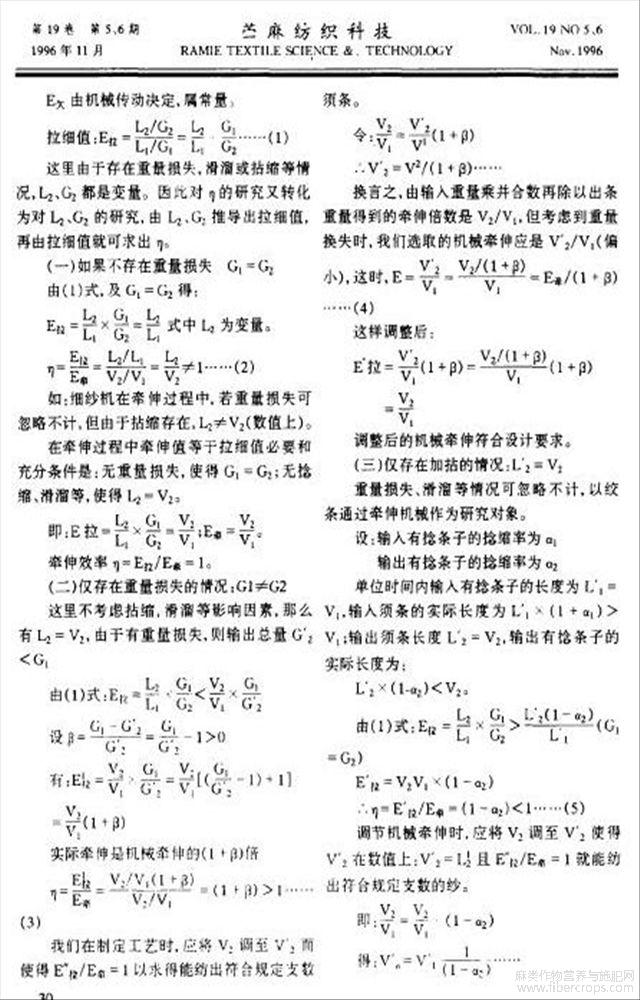 第19卷 第5,6期
1996年11月
苎麻纺织科技
RAMIE TEXTILE SCIENCE & TECHNOLOGY
VOL.19 NO 5,6
Nov.1996
E欠由机械传动决定,属常量。
拉细值:E拉=L₂/G₂ / L₁/G₁=L₂/L₁·G₁/G₂……(1)
这里由于存在重量损失,滑溜或拈缩等情
况,L₂、G₂都是变量。因此对η的研究又转化
为对L₂、G₂的研究,由L₂、G₂推导出拉细值,
再由拉细值就可求出η。
(一)如果不存在重量损失 G₁=G₂
由(1)式,及G₁=G₂得:
E拉=L₂/L₁×G₁/G₂=L₂/L₁ 式中L₂为变量。
η=E拉/E牵=L₂/L₁ / V₂/V₁=L₂/V₂≠1……(2)
如:细纱机在牵伸过程中,若重量损失可
忽略不计,但由于拈缩存在,L₂≠V₂(数值上)。
在牵伸过程中牵伸值等于拉细值必要和
充分条件是:无重量损失,使得G₁=G₂;无捻
缩、滑溜等,使得L₂=V₂。
即:E拉=L₂/L₁×G₁/G₂=V₂/V₁;E牵=V₂/V₁。
牵伸效率η=E拉/E牵=1。
(二)仅存在重量损失的情况:G1≠G2
这里不考虑拈缩,滑溜等影响因素,那么
有L₂=V₂,由于有重量损失,则输出总量G′₂
<G₁
由(1)式:E拉=L₂/L₁×G₁/G₂<V₂/V₁×G₁/G′₂
设β=G₁-G′₂/G′₂=G₁/G′₂-1>0
有:E′拉=V₂/V₁×G₁/G′₂=V₂/V₁[(G₁/G′₂-1)+1]
=V₂/V₁(1+β)
实际牵伸是机械牵伸的(1+β)倍
η=E′拉/E牵=V₂/V₁(1+β) / V₂/V₁=(1+β)>1……
(3)
我们在制定工艺时,应将V₂调至V′₂而
使得E″拉/E牵=1以求得能纺出符合规定支数
30
须条。
令:V₂/V₁=V′₂/V¹(1+β)
∴V′₂=V²/(1+β)……
换言之,由输入重量乘并合数再除以出条
重量得到的牵伸倍数是V₂/V₁,但考虑到重量
换失时,我们选取的机械牵伸应是V′₂/V₁(偏
小),这时,E=V′₂/V₁=V₂/(1+β) / V₁=E牵/(1+β)
……(4)
这样调整后:
E″拉=V′₂/V₁(1+β)=V₂/(1+β) / V₁(1+β)
=V₂/V₁
调整后的机械牵伸符合设计要求。
(三)仅存在加拈的情况:L′₂=V₂
重量损失、滑溜等情况可忽略不计,以绞
条通过牵伸机械作为研究对象。
设:输入有捻条子的捻缩率为α₁
输出有捻条子的捻缩率为α₂
单位时间内输入有捻条子的长度为L′₁=
V₁,输入须条的实际长度为L′₁×(1+α₁)>
V₁;输出须条长度L′₂=V₂,输出有捻条子的
实际长度为:
L′₂×(1-α₂)<V₂。
由(1)式:E拉=L₂/L₁×G₁/G₂>L′₂(1-α₂)/L′₁(G₁
=G₂)
E′拉=V₂V₁×(1-α₂)
∴η=E′拉/E牵=(1-α₂)<1……(5)
调节机械牵伸时,应将V₂调至V′₂使得
V′₂在数值上:V′₂=L½且E″拉/E牵=1就能纺
出符合规定支数的纱。
即:V₂/V₁=V₂/V₁·(1-α₂)
得:V′ₙ=V′₁ 1/(1-α₂)……
麻类作物营养与施肥网
www.fibercrops.com